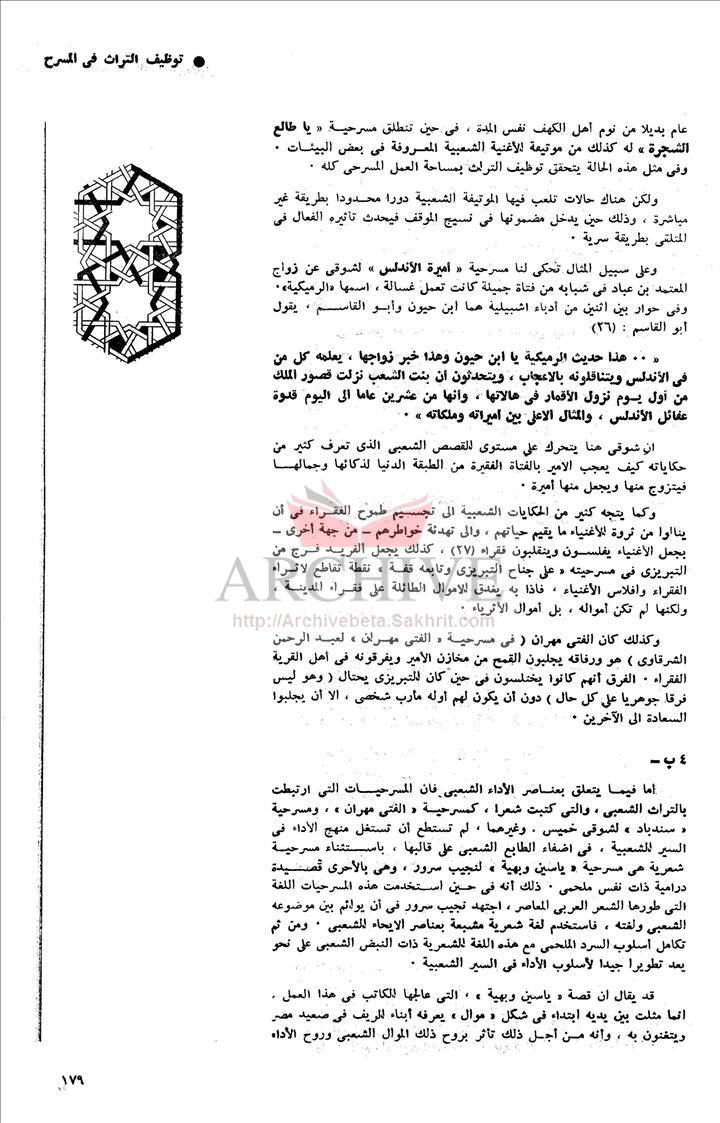 ● توظيف التراث فى المسرح
عام بديلا من نوم أهل الكهف نفس المدة ، فى حين تنطلق مسرحية « يا طالع
الشجرة » له كذلك من موتيفة للأغنية الشعبية المعروفة فى بعض البيئات ٠
وفى مثل هذه الحالة يتحقق توظيف التراث بمساحة العمل المسرحى كله ٠
ولكن هناك حالات تلعب فيها الموتيفة الشعبية دورا محدودا بطريقة غير
مباشرة ، وذلك حين يدخل مضمونها فى نسيج الموقف فيحدث تأثيره الفعال فى
المتلقى بطريقة سرية ٠
وعلى سبيل المثال تحكى لنا مسرحية « أميرة الأندلس » لشوقى عن زواج
المعتمد بن عباد فى شبابه من فتاة جميلة كانت تعمل غسالة ، اسمها «الرميكية»٠
وفى حوار بين اثنين من أدباء اشبيلية هما ابن حيون وأبو القاسم ، يقول
أبو القاسم : (٢٦)
« ٠٠ هذا حديث الرميكية يا ابن حيون وهذا خبر زواجها ، يعلمه كل من
فى الأندلس ويتناقلونه بالاعجاب ، ويتحدثون أن بنت الشعب نزلت قصور الملك
من أول يوم نزول الأقمار فى هالاتها ، وأنها من عشرين عاما الى اليوم قدوة
عقائل الأندلس ، والمثال الأعلى بين أميراته وملكاته » ٠
ان شوقى هنا يتحرك على مستوى للقصص الشعبى الذى تعرف كثير من
حكاياته كيف يعجب الامير بالفتاة الفقيرة من الطبقة الدنيا لذكائها وجمالها
فيتزوج منها ويجعل منها أميرة ٠
وكما يتجه كثير من الحكايات الشعبية الى تجسيم طموح الفقراء فى أن
ينالوا من ثروة للأغنياء ما يقيم حياتهم ، والى تهدئة خواطرهم – من جهة أخرى –
بجعل الأغنياء يفلسون وينقلبون فقراء (٢٧) ، كذلك يجعل ألفريد فرج من
التبريزى فى مسرحيته « على جناح التبريزى وتابعه قفة » نقطة تقاطع لاثراء
الفقراء وافلاس الأغنياء ، فاذا به يغدق للاموال الطائلة على فقراء المدينة ،
ولكنها لم تكن أمواله ، بل أموال الأثرياء ٠
ARCHIVE
http://Archivebeta.Sakhrit.com
وكذلك كان الفتى مهران ( فى مسرحية « الفتى مهران » لعبد الرحمن
الشرقاوى ) هو ورفاقه يجلبون القمح من مخازن الأمير ويفرقونه فى أهل القرية
الفقراء ٠ الفرق أنهم كانوا يختلسون فى حين كان للتبريزى يحتال ( وهو ليس
فرقا جوهريا على كل حال ) دون أن يكون لهم أوله مأرب شخصى ، الا أن يجلبوا
السعادة الى الآخرين ٠
٤ ب –
أما فيما يتعلق بعناصر الأداء الشعبى فان المسرحيات التى ارتبطت
بالتراث الشعبى ، والتى كتبت شعرا ، كمسرحية « الفتى مهران » ، ومسرحية
« سندباد » لشوقى خميس ٠ وغيرهما ، لم تستطع أن تستغل منهج الأداء فى
السير للشعبية ، فى اضفاء الطابع الشعبى على قالبها ، باستثناء مسرحية
شعرية هى مسرحية « ياسين وبهية » لنجيب سرور ، وهى بالأحرى قصيدة
درامية ذات نفس ملحمى ٠ ذلك أنه فى حين استخدمت هذه المسرحيات اللغة
التى طورها الشعر العربى المعاصر ، اجتهد نجيب سرور فى أن يوائم بين موضوعه
الشعبى ولغته ، فاستخدم لغة شعرية مشبعة بعناصر الايحاء للشعبى ٠ ومن ثم
تكامل أسلوب السرد الملحمى مع هذه اللغة للشعرية ذات النبض الشعبى على نحو
يعد تطويرا جيدا لأسلوب الأداء فى السير الشعبية ٠
قد يقال ان قصة « ياسين وبهية » ، التى عالجها للكاتب فى هذا العمل ،
انما مثلت بين يديه ابتداء فى شكل « موال » يعرفه أبناء للريف فى صعيد مصر
ويتغنون به ، وأنه من أجل ذلك تأثر بروح ذلك الموال الشعبى وروح الأداء
١٧٩